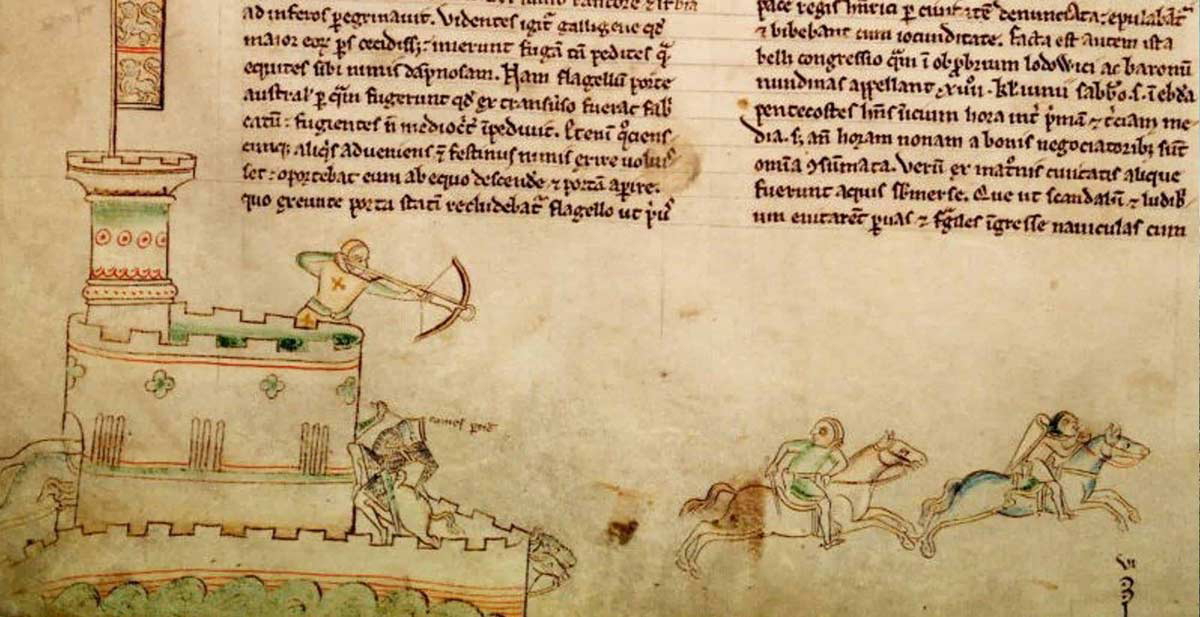 ad inferos peregrinauit. Videntes igit̃ galligene qđ
maior eoꝝ ps cecidiss; inierunt fugā tā pedites q̄
equites sibi nimis dāpnosam. Nam flagellū porte
austral' ꝑ quā fugerunt qđ ex transuso fuerat fab
catū: fugientes n̄ mediocr̃ īpediuit. Etenī q̊ciens
cunq; aliq̇s adueniens ⁊ festinus nimis exire uoluis
set: oportebat eum ab equo descende ⁊ portā apire.
quo exeunte porta statī recludebat̃ flagello ut p̉us
pace regis hnrici ꝑ denunciata: epulabāt̃
⁊ bibebant cum iocunditate. facta est autem ista
belli congressio quā ī obꝓbrium lodowici ac baronū
nundinas appellant xiiii. kl' iunii sabbo. s. ī ebda
pentecostes hn̄s inicium hora int̃ p̉mā ⁊ t̃ciam me
dia. s; an̄ horam nonam a bonis negociatoribꝫ sūt
omīa ꝯsūmata. Verū ex mat̊nis ciuitatis alique
fuerunt aquis sb̄merse. Que ut scandalū ⁊ ludib̉
um euitarēt puas ⁊ fragiles īgresse nauiculas cum